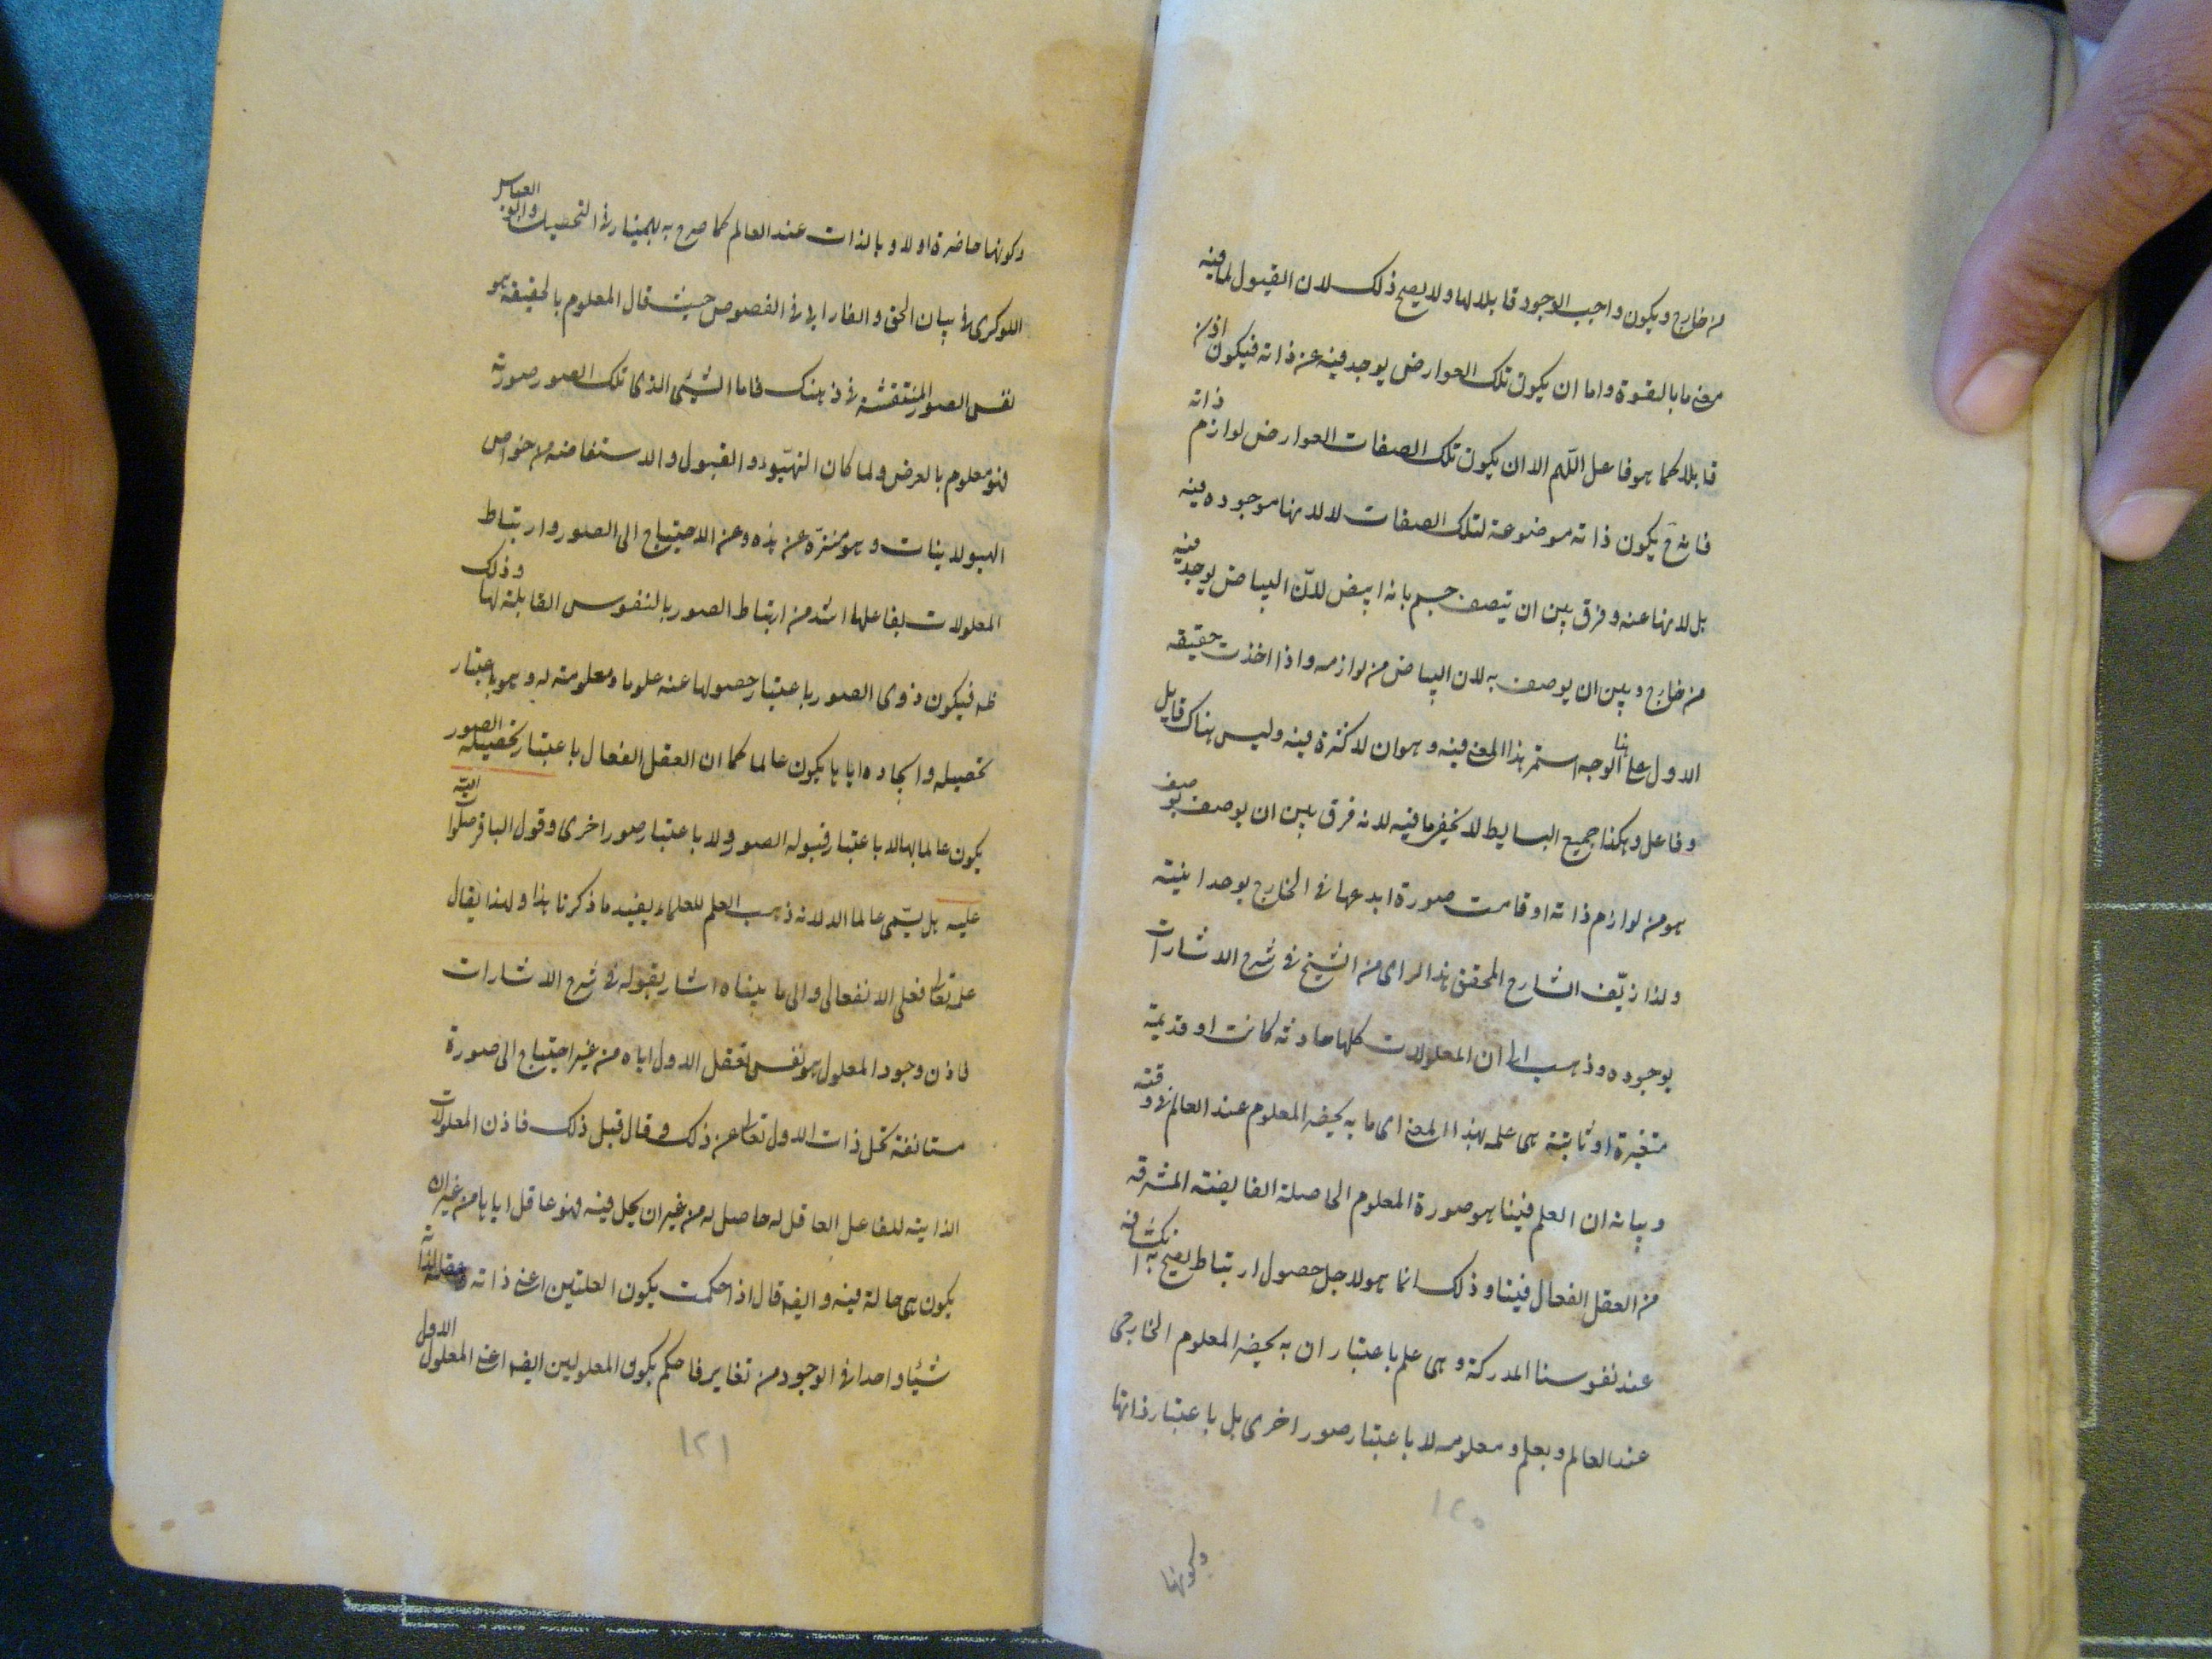 من خارج ويكون واجب الوجود قابلا لها ولا يصح ذلك لان القبول لما فيه
معنى ما بالقوة واما ان يكون تلك العوارض يوجد فيه عن ذاته فيكون اذن
قابلا كما هو فاعل اللهم الا ان يكون تلك الصفات العوارض لوازم ذاته
فانه ح يكون ذاته موضوعة لتلك الصفات لا لانها موجوده فيه
بل لانها عنه و فرق بين ان يتصف جسم بانه ابيض لان البياض يوجد فيه
من خارج و بين ان يوصف به لان البياض من لوازمه واذا اخذت حقيقه
الاول على هذا الوجه استمر هذا المعنى فيه وهو ان لا كثرة فيه وليس هناك قابل
وفاعل وهكذا جميع البسايط لا يخفى ما فيه لانه فرق بين ان يوصف بوصف
هو من لوازم ذاته او قامت صورة ابدعها في الخارج بوحدانيته
ولذا زيّف الشارح المحقق هذا الراى من الشيخ في شرح الاشارات
بوجوده وذهب الى ان المعلولات كلها حادثه كانت او قديمة
متغيرة او ثابتة هى علمه بهذا المعنى اى ما به يحضر المعلوم عند العالم في وقته
وبيانه ان العلم فينا هو صورة المعلوم الحاصلة الفايضة المشرقه
من العقل الفعال فينا وذلك انما هو لاجل حصول ارتباط يصح به انكشافه
عند نفوسنا المدركة وهى علم باعتبار ان به يحضر المعلوم الخارجى
عند العالم وبعلم ومعلومه لا باعتبار صور اخرى بل باعتبار ذاتها
١٢٠
وكونها
وكونها حاضرة اولا وبالذات عند العالم كما صرح به بهمنيار في التحصيل وابو العباس
اللوكرى في بيان الحق والفارابي في الفصوص حيث قال المعلوم بالحقيقة هو
نفس الصور المنتقشة في ذهنك فاما الشيئ الذى تلك الصور صورته
فهو معلوم بالعرض ولما كان التهيّوء والقبول والاستفاضه من خواص
الهيولانيات وهو منزّه عن هذه وعن الاحتياج الى الصور وارتباط
المعلولات بفاعلها اشد من ارتباط الصور بالنفوس القابلة لها وذلك
ظه فيكون ذوى الصور باعتبار حصولها عنه علوما ومعلومة له وهو باعتبار
تحصيله وايجاده اياها يكون عالما كما ان العقل الفعال باعتبار تحصيله الصور
يكون عالما بها لا باعتبار قبوله الصور ولا باعتبار صور اخرى وقول الباقر صلوات الله
عليه بل يسّمى عالما الا لانه ذهب العلم للعلماء يفيد ما ذكرنا هذا ولهذا يقال
علمه تعالى فعلى لا انفعالى والى ما بيناه اشار بقوله في شرح الاشارات
فاذن وجود المعلول هو نفس تعقل الاول اياه من غير احتياج الى صورة
مستانفة تحل ذات الاول تعالى عن ذلك وقال قبل ذلك فاذن المعلولات
الذاتية للفاعل العاقل له حاصل له من غير ان يحل فيه فهو عاقل اياها من غير ان
يكون هى حالة فيه وايضه قال اذا حكمت بكون العلتين اعنى ذاته وعقله لذاته
شيئا واحدا في الوجود من تغاير فاحكم بكون المعلولين ايضه اعنى المعلول الاول
١٢١